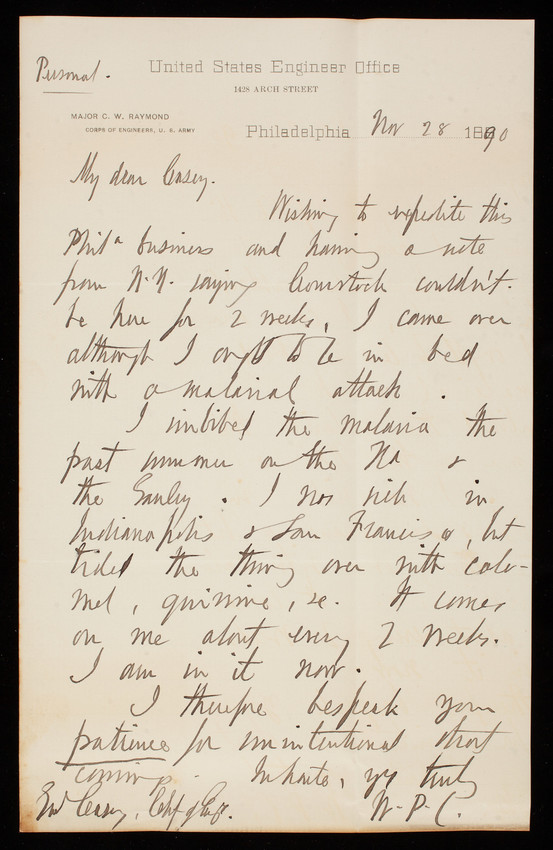 Personal.
United States Engineer Office
1428 ARCH STREET
MAJOR C. W. RAYMOND
CORPS OF ENGINEERS, U. S. ARMY
Philadelphia Nov 28 1890
My dear Casey.
Wishing to expedite this
Phila business and having a note
from N.Y. saying Comstock couldn't
be here for 2 weeks, I came over
although I ought to be in bed
with a malarial attack.
I imbibed the malaria the
past summer on the Ka &
the Gauley. I was sick in
Indianapolis & San Francisco, but
tided the thing over with calo-
mel, quinine, &c. It comes
on me about every 2 weeks.
I am in it now.
I therefore bespeak your
patience for unintentional short
comings. In haste, yrs truly
W. P. C.
Genl Casey, Chf of Engr.